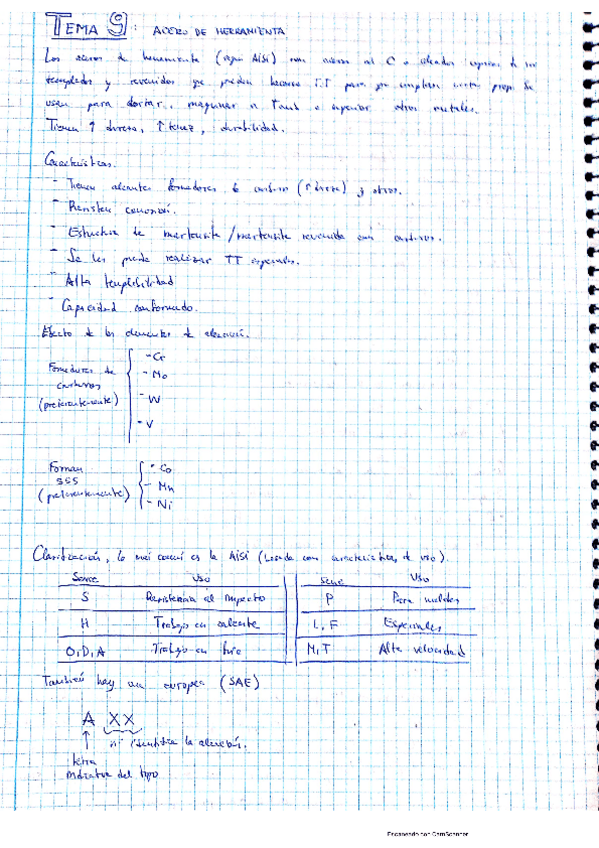 TEMA 9: ACERO DE HERRAMIENTA
Los aceros de herramienta (según AISI) son aceros al C o aleados capaces de ser
templados y revenidos que pueden TT para que cumplan
usan para cortar, maquinar a Tamb o superior otros metales.
Tienen ↑ dureza, ↑ tenaz, durabilidad.
Características.
- Tienen aleantes formadores de carburo (↑ dureza) y otros.
- Resisten corrosión.
- Estructura de martensita/martensita revenida con carburos.
- Se les puede realizar TT especiales.
- Alta templabilidad
- Capacidad conformado.
Efecto de los elementos de aleación.
Formadores de carburos (preferentemente)
- Cr
- Mo
- W
- V
Forman SSS (preferentemente)
- Co
- Mn
- Ni
Clasificación, lo más común es la AISI (basada con características de uso).
Serie Uso Serie Uso
S Resistencia al impacto P Para moldes
H Trabajo en caliente L, F Especiales
O, D, A Trabajo en frío M, T Alta velocidad
También hay una europea (SAE)
A XX
nº identifica la aleación.
letra
indicativa del tipo
Escaneado con CamScanner